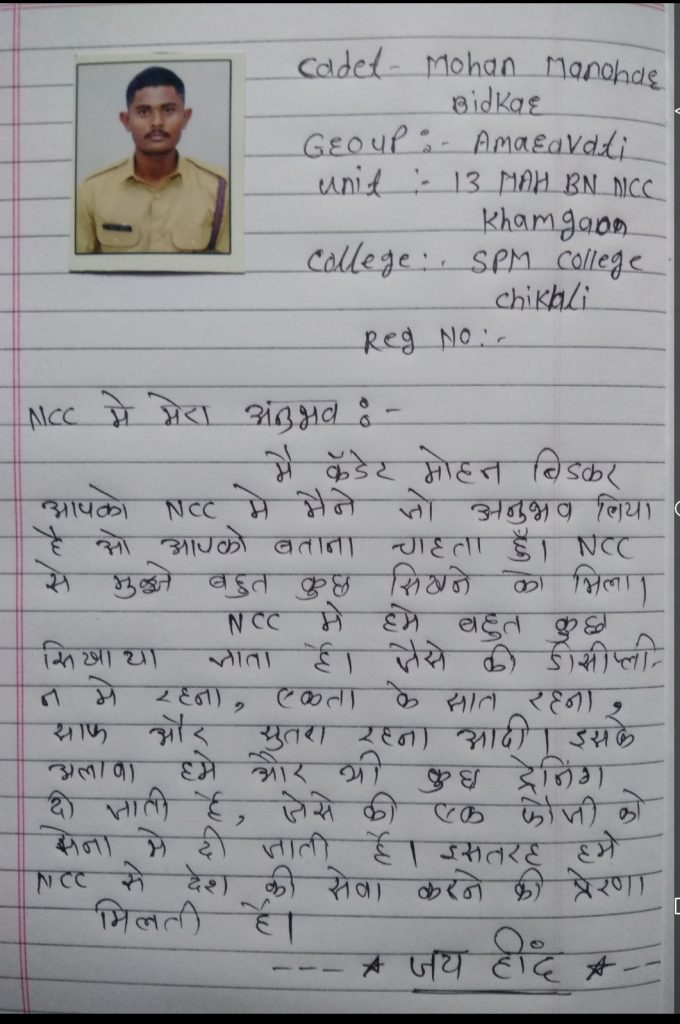 Cadet - Mohan Manohar
Bidkar
Group :- Amaravati
Unit :- 13 MAH BN NCC
Khamgaon
College :- SPM College
Chikhli
Reg No :-
NCC मे मेरा अंनुभव :-
मै कॅडेट मोहन बिडकर
आपको NCC मे मैने जो अनुभव लिया
है ओ आपको बताना चाहता हुँ। NCC
से मुझे बहुत कुछ सिखने को मिला।
NCC मे हमे बहुत कुछ
सिखाया जाता है। जैसे की डीसीप्ली-
न मे रहना, एकता के सात रहना,
साफ और सुतरा रहना आदी। इसके
अलावा हमे और भी कुछ ट्रेनिंग
दी जाती है, जैसे की एक फौजी को
सेना मे दी जाती है। इसतरह हमे
NCC से देश की सेवा करने की प्रेरणा
मिलती है।
---- ★ जय हींद ★ --